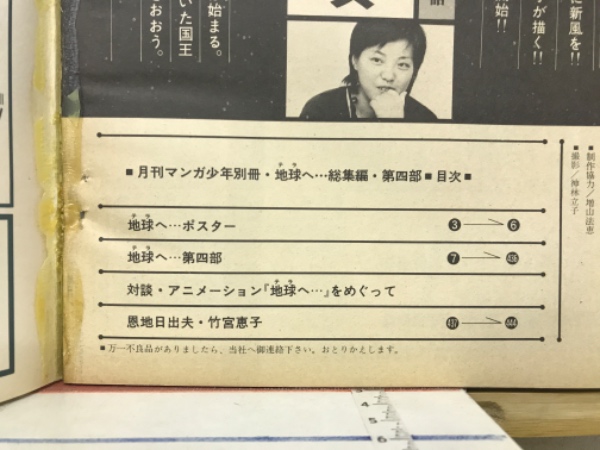 に新風を!!
が描く!!
始!!
話
始まる。
いた国王
おおう。
■月刊マンガ少年別冊・地球へ…総集編・第四部■目次■
テラ
地球へ…ポスター
3→6
テラ
地球へ…第四部
7→436
テラ
対談・アニメーション『地球へ…』をめぐって
テラ
恩地日出夫・竹宮恵子
437→444
■万一不良品がありましたら、当社へ御連絡下さい。おとりかえします。
■制作協力/増山法恵
■撮影/神林立子
4
5
6